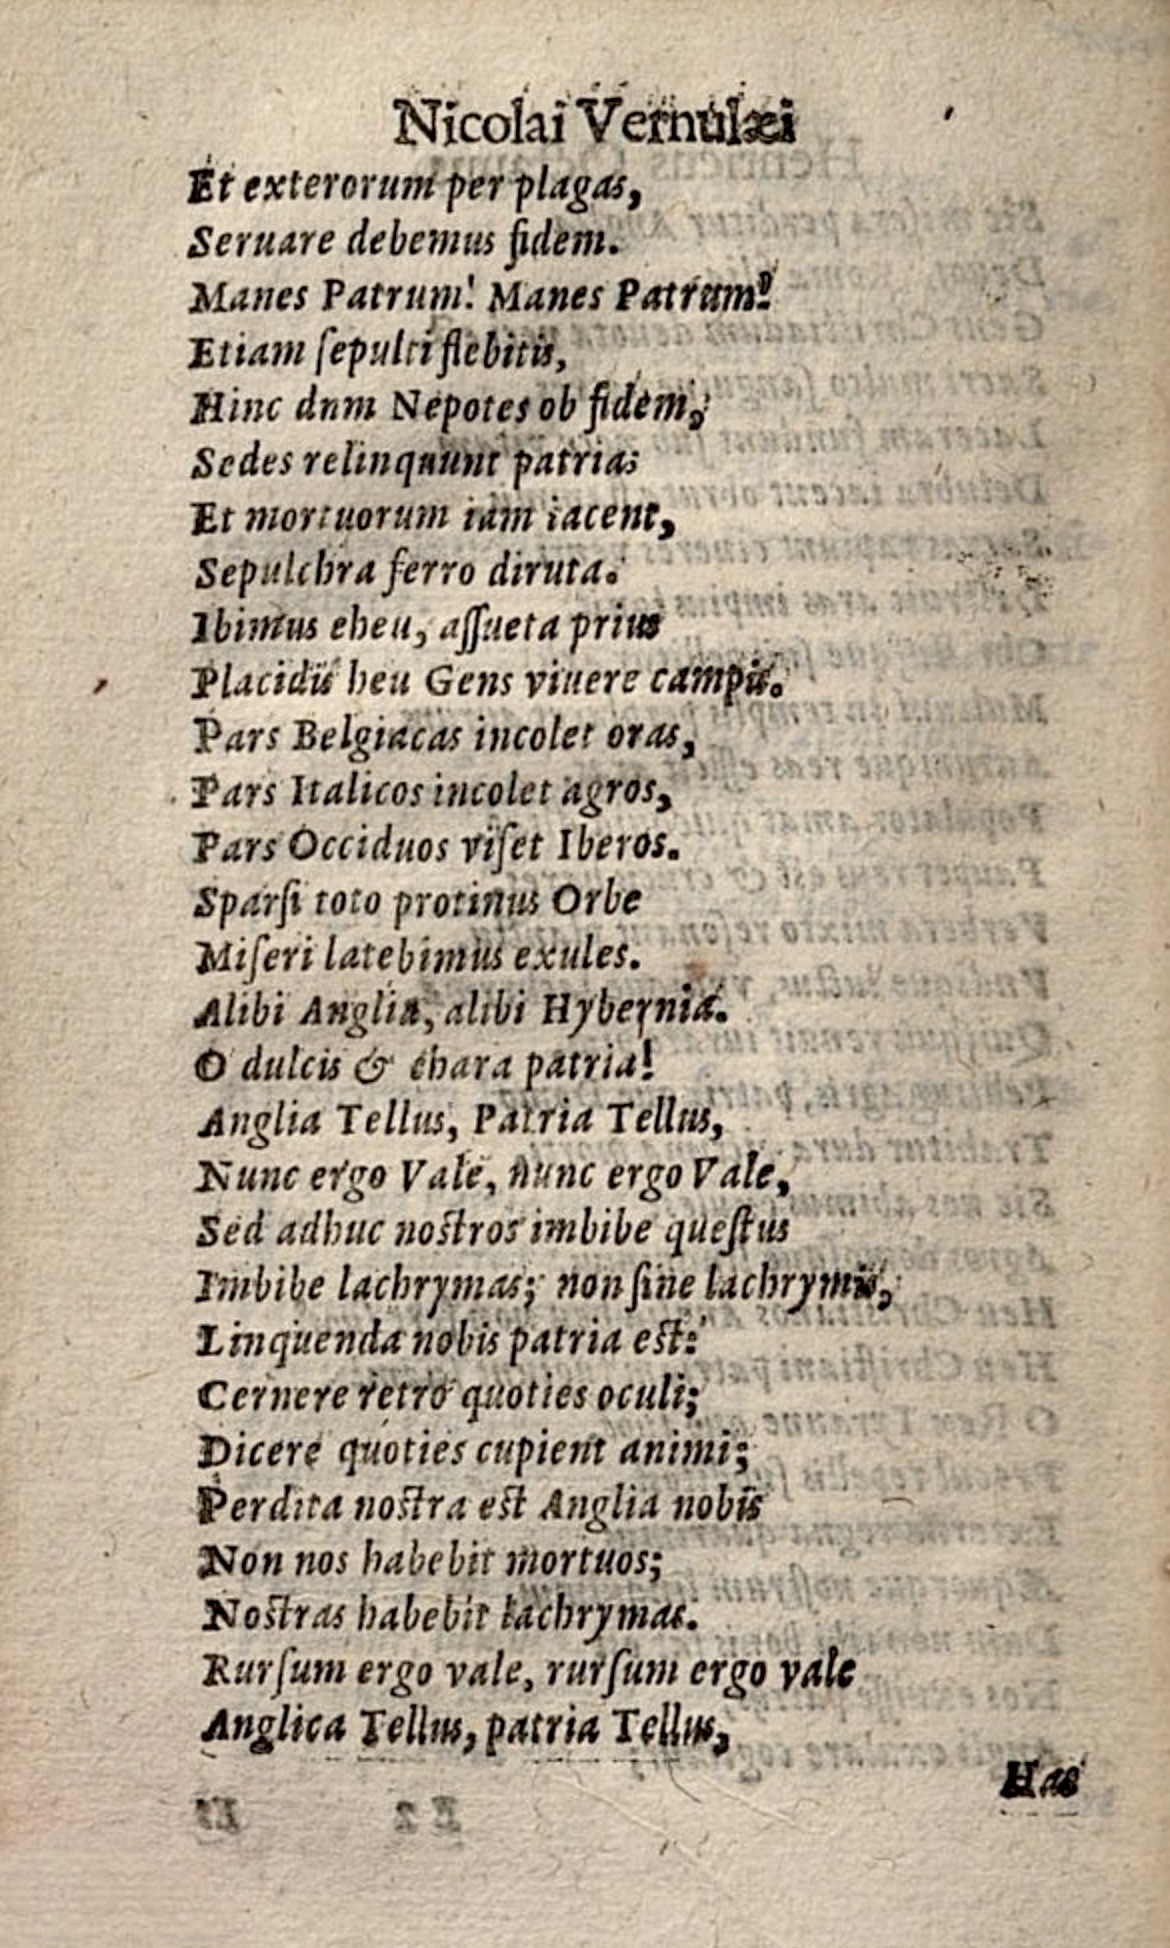 Nicolai Vernulæi
Et exterorum per plagas,
Seruare debemus fidem.
Manes Patrum! Manes Patrum!
Etiam ſepulti flebitis,
Hinc dnm Nepotes ob fidem,
Sedes relinquunt patria:
Et mortuorum iam iacent,
Sepulchra ferro diruta.
Ibimus eheu, aſſueta prius
Placidis heu Gens viuere campis.
Pars Belgiacas incolet oras,
Pars Italicos incolet agros,
Pars Occiduos viſet Iberos.
Sparſi toto protinus Orbe
Miſeri latebimus exules.
Alibi Anglia, alibi Hybernia.
O dulcis & chara patria!
Anglia Tellus, Patria Tellus,
Nunc ergo Vale, nunc ergo Vale,
Sed adhuc noſtros imbibe queſtus
Imbibe lachrymas; non ſine lachrymis,
Linquenda nobis patria eſt:
Cernere retro quoties oculi;
Dicere quoties cupient animi;
Perdita noſtra eſt Anglia nobis
Non nos habebit mortuos;
Noſtras habebit lachrymas.
Rurſum ergo vale, rurſum ergo vale
Anglica Tellus, patria Tellus,
Hac